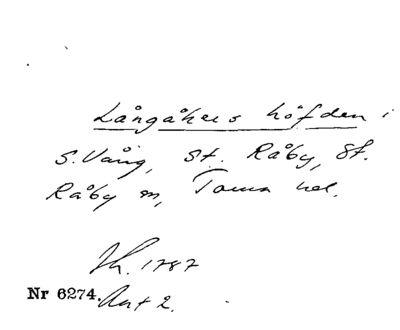 Långåkers höfden i
S. Vång, St. Råby, St.
Råby m, Torna hd.
Sk. 1787
Nr 6274. Akt 2.